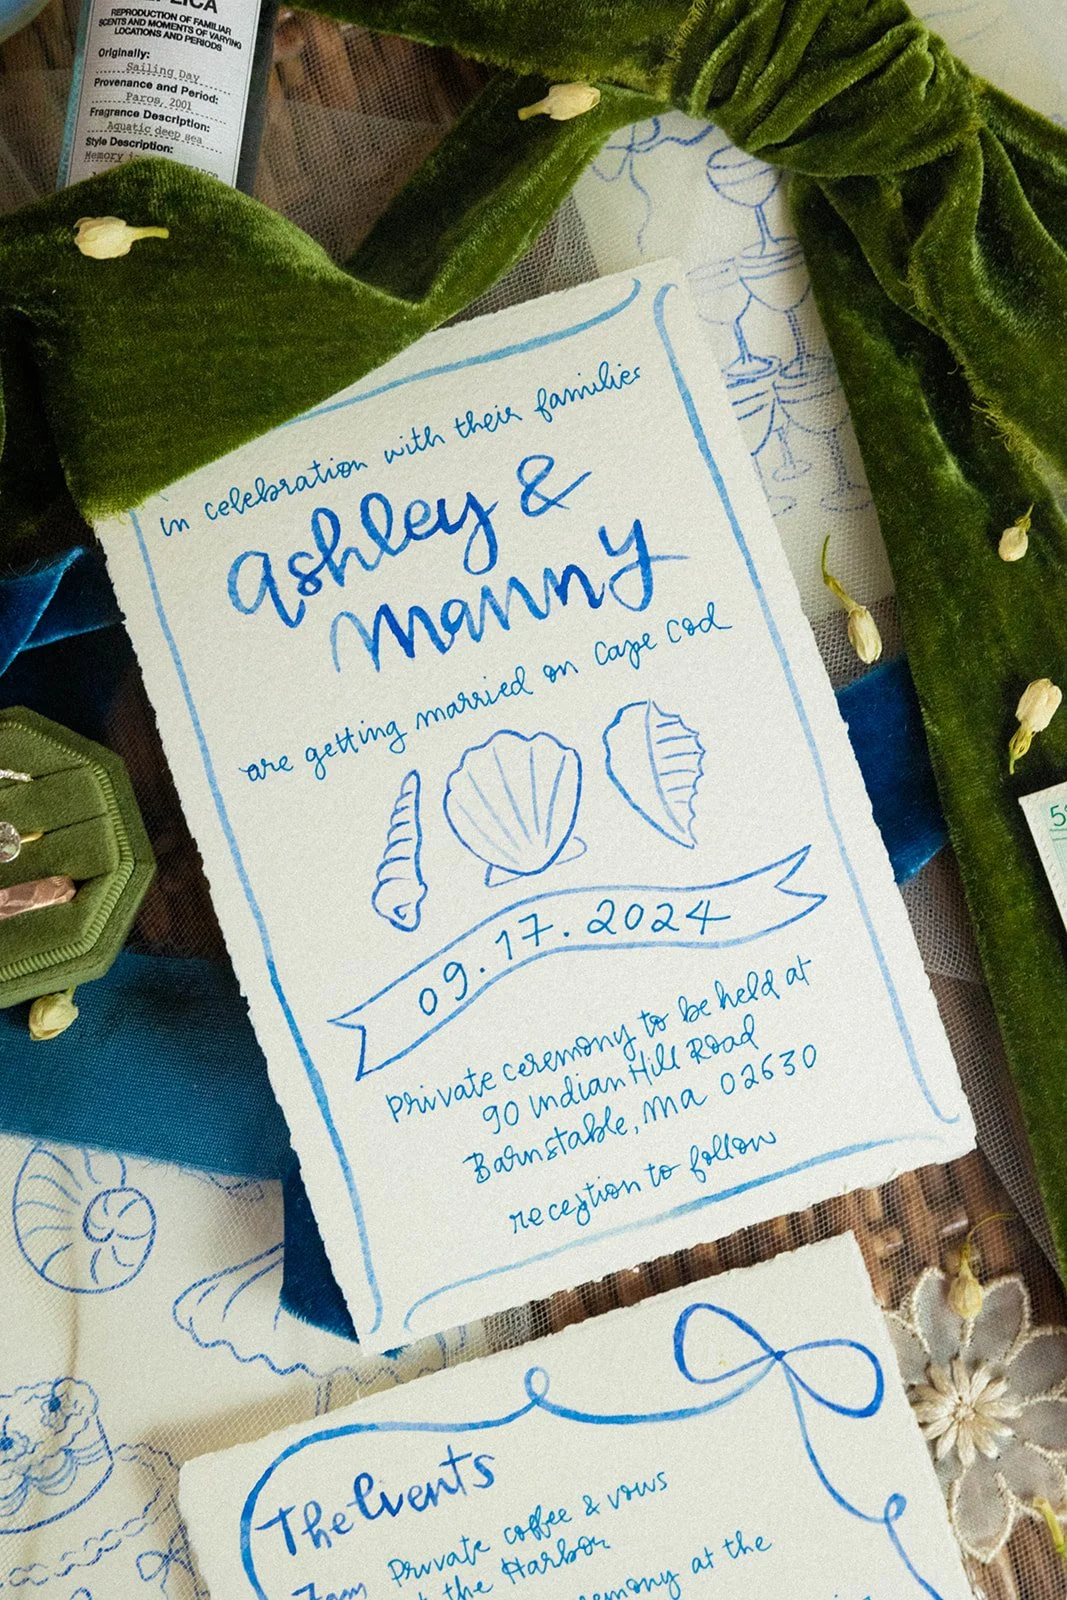 REPLICA
REPRODUCTION OF FAMILIAR
SCENTS AND MOMENTS OF VARYING
LOCATIONS AND PERIODS
Originally:
Sailing Day
Provenance and Period:
Paros, 2001
Fragrance Description:
Aquatic deep sea
Style Description:
Memory
in celebration with their families
Ashley &
Manny
are getting married on Cape Cod
09.17.2024
private ceremony to be held at
90 Indian Hill Road
Barnstable, MA 02630
reception to follow
The Events
7am Private coffee & vows
the Harbor
ceremony at the